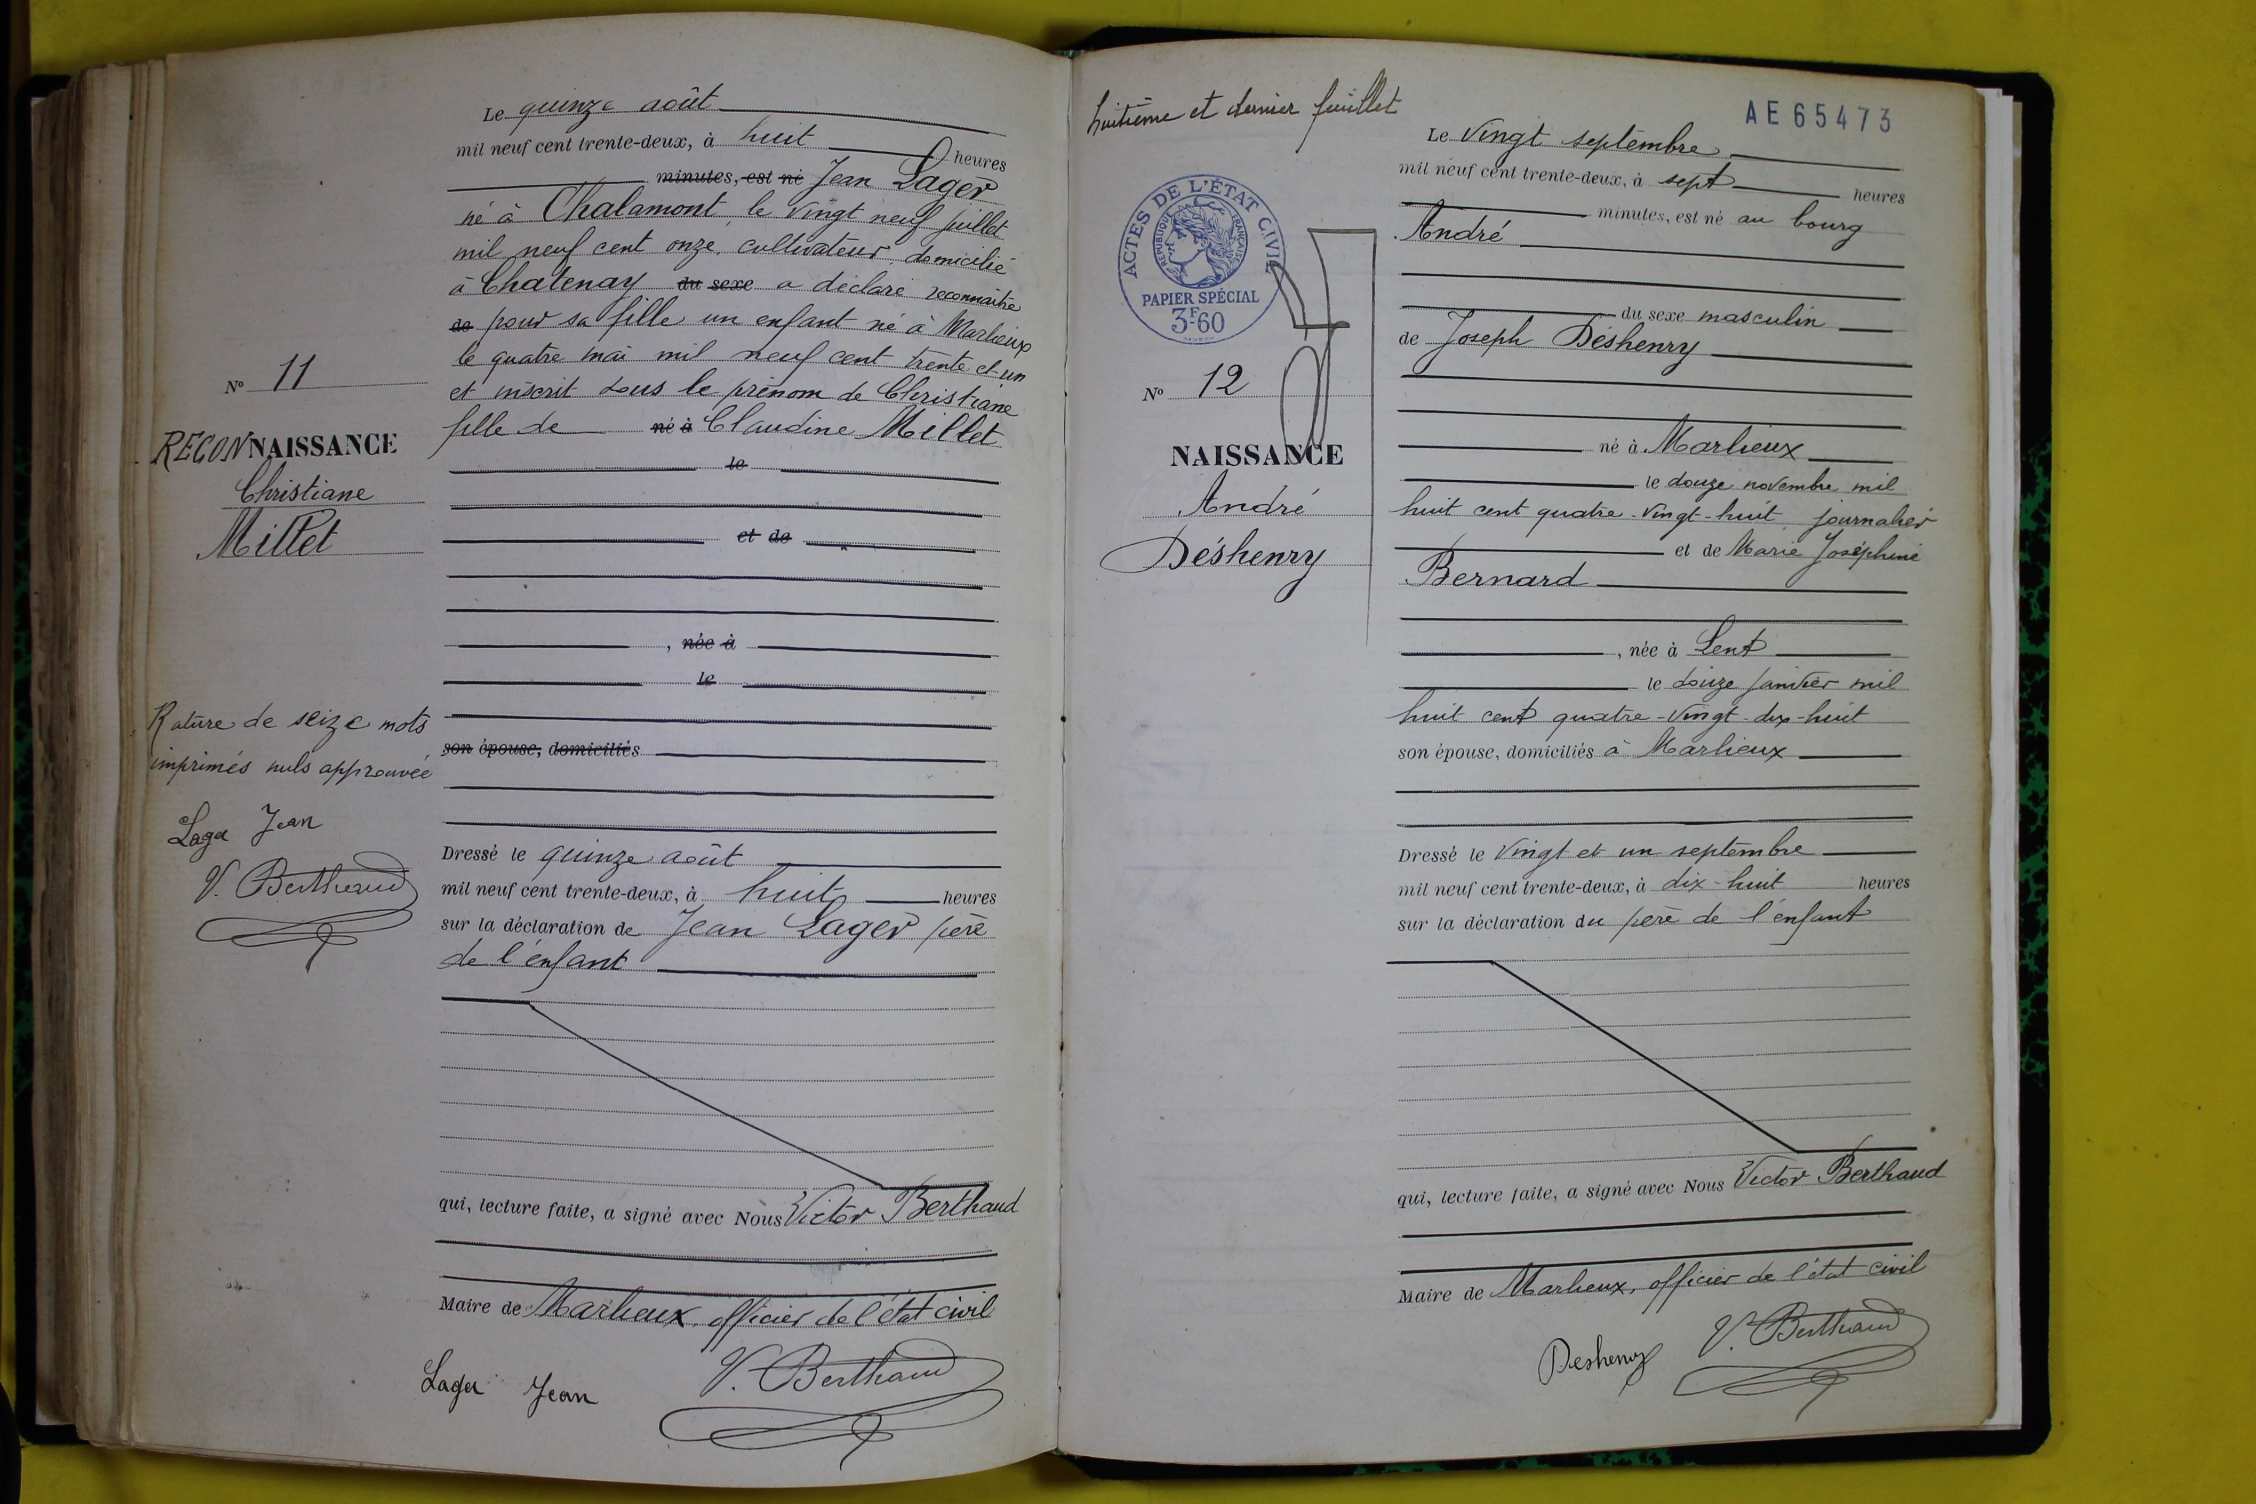 Le quinze août
mil neuf cent trente-deux, à huit heures
minutes, est né Jean Lager
né à Chalamont le vingt neuf juillet
mil neuf cent onze, cultivateur, domicilié
à Chatenay du sexe a déclaré reconnaître
de pour sa fille un enfant né à Marlieux
le quatre mai mil neuf cent trente et un
et inscrit sous le prénom de Christiane
fille de né à Claudine Millet
le
et de
, née à
le
son épouse, domiciliés
Dressé le quinze août
mil neuf cent trente-deux, à huit heures
sur la déclaration de Jean Lager père
de l'enfant
qui, lecture faite, a signé avec Nous Victor Berthaud
Maire de Marlieux, officier de l'état civil
Lager Jean V. Berthaud
No 11
RECONNAISSANCE
Christiane
Millet
Rature de seize mots
imprimés nuls approuvée
Lager Jean
V. Berthaud
huitième et dernier feuillet
AE 65473
ACTES DE L'ÉTAT CIVIL
RÉPUBLIQUE FRANÇAISE
PAPIER SPÉCIAL
3F60
No 12
NAISSANCE
André
Déshenry
Le vingt septembre
mil neuf cent trente-deux, à sept heures
minutes, est né au bourg
André
du sexe masculin
de Joseph Déshenry
né à Marlieux
le douze novembre mil
huit cent quatre-vingt-huit, journalier
et de Marie Joséphine
Bernard
, née à Lent
le douze janvier mil
huit cent quatre-vingt-dix-huit
son épouse, domiciliés à Marlieux
Dressé le vingt et un septembre
mil neuf cent trente-deux, à dix-huit heures
sur la déclaration du père de l'enfant
qui, lecture faite, a signé avec Nous Victor Berthaud
Maire de Marlieux, officier de l'état civil
Deshenry V. Berthaud